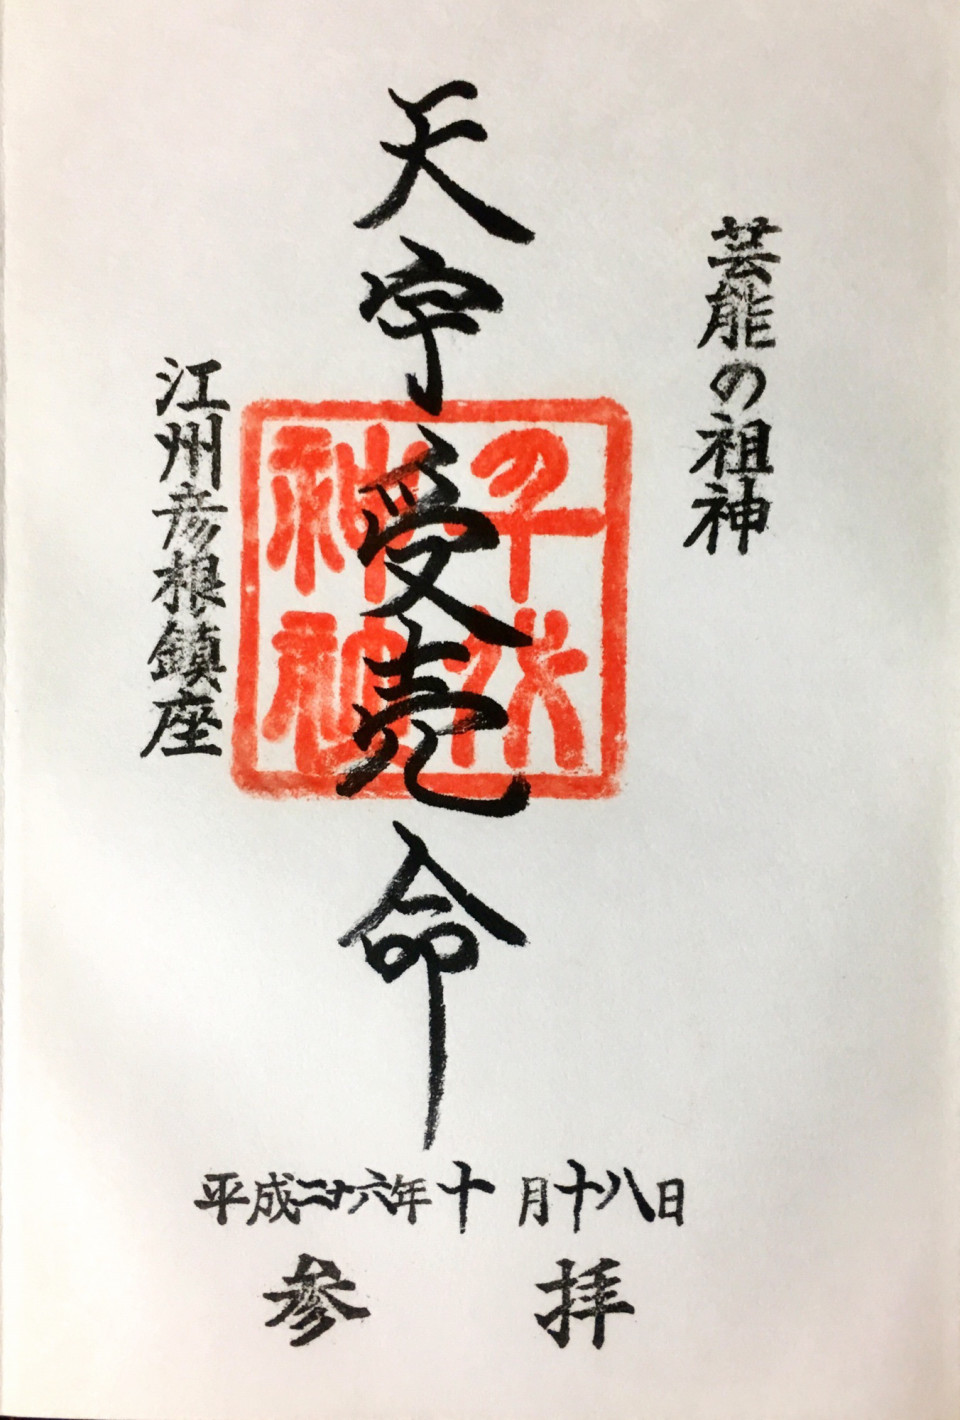 芸能の祖神
天宇受売命
千代神社
江州彦根鎮座
平成二十六年十月十八日
参拝